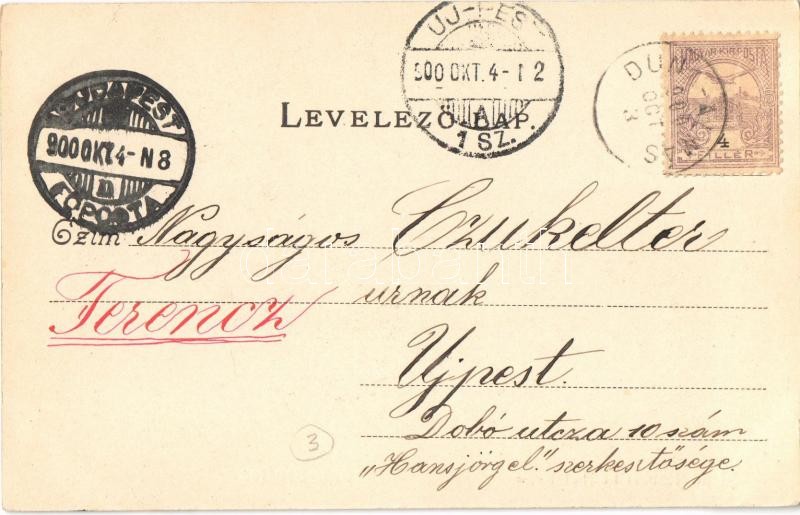 UJ-PEST
900 OKT. 4 - 1 2
A
1 SZ.
BUDAPEST
900 OKT. 4 - N 8
n
FŐPOSTA
LEVELEZŐ-LAP.
MAGYAR KIR. POSTA
4
FILLÉR
DUN
OCT
3
Czim Nagyságos Czukelter
Ferencz
urnak
Ujpest.
Dobó utcza 10 szám
„Hansjörgel" szerkesztősége.
3
darabanth